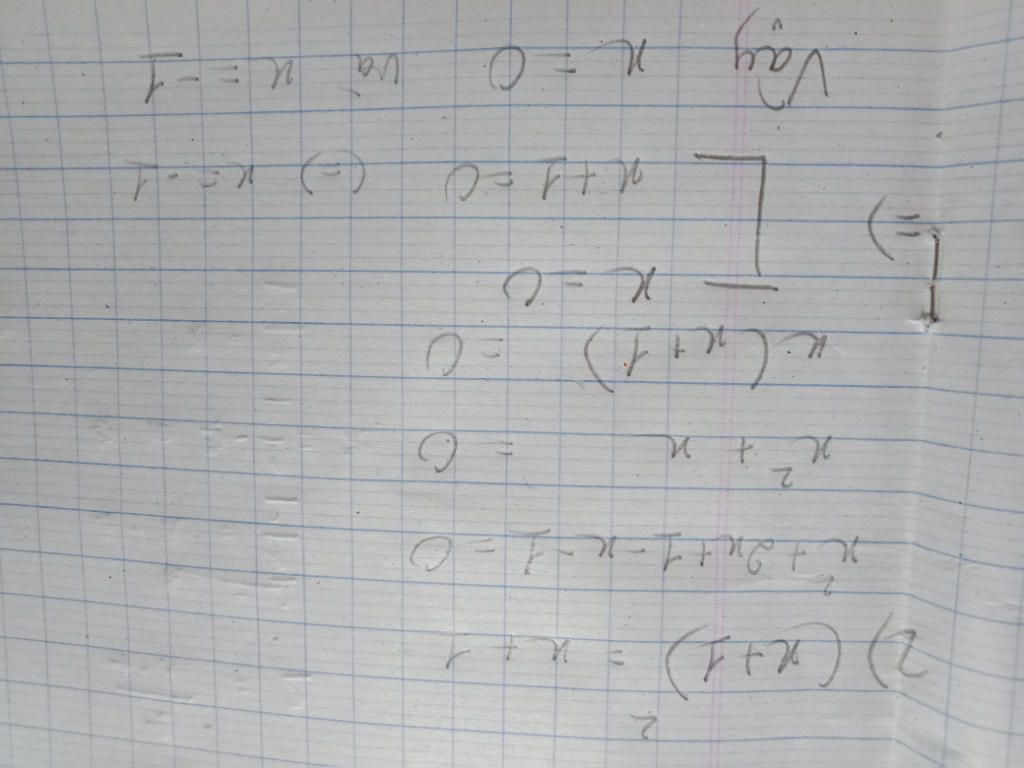 2) (x+1)² = x+1
x²+2x+1-x-1=0
x² + x = 0
x(x+1) = 0
x = 0
(=) [
x+1=0 (=) x=-1
Vậy x=0 và x=-1